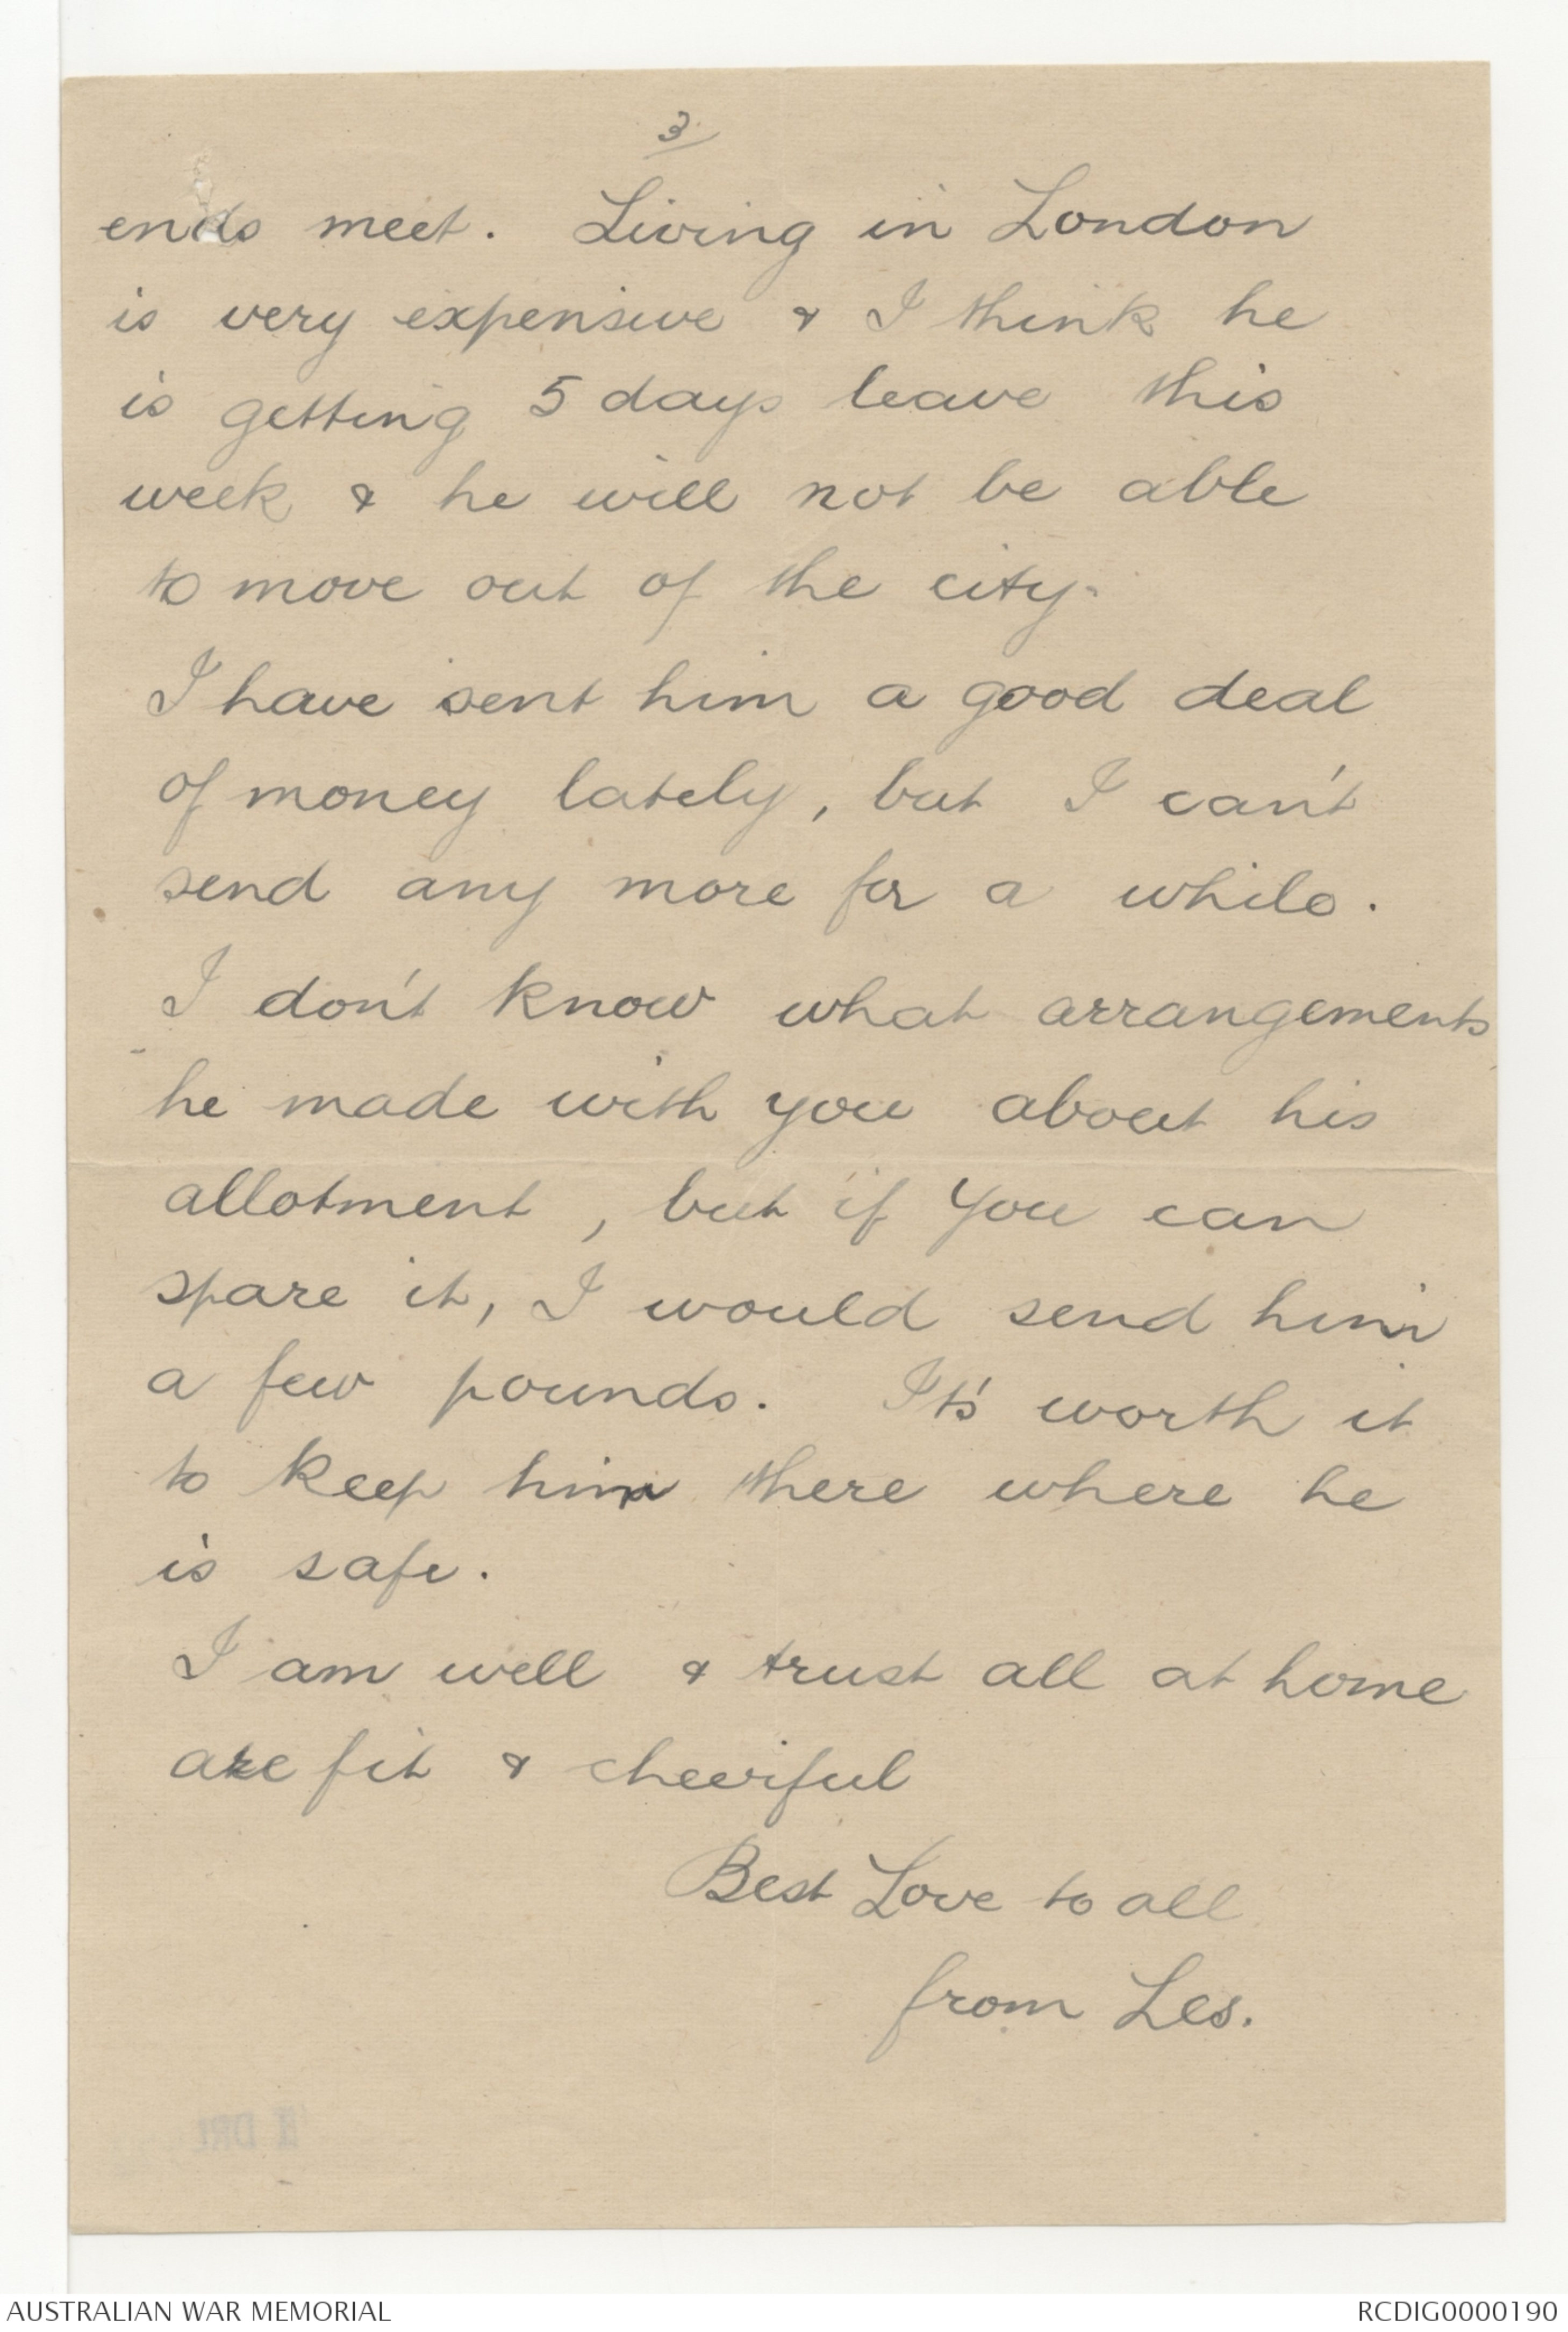 3
ends meet. Living in London
is very expensive & I think he
is getting 5 days leave this
week & he will not be able
to move out of the city.
I have sent him a good deal
of money lately, but I can't
send any more for a while.
I don't know what arrangements
he made with you about his
allotment, but if you can
spare it, I would send him
a few pounds. It's worth it
to keep him there where he
is safe.
I am well & trust all at home
are fit & cheerful
Best Love to all
from Les.
AUSTRALIAN WAR MEMORIAL
RCDIG0000190